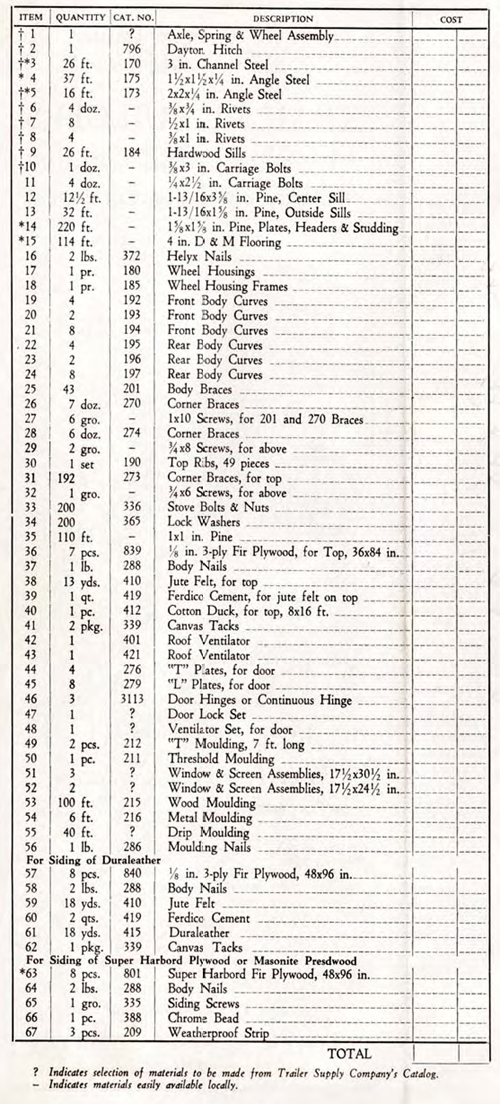 ITEM QUANTITY CAT. NO. DESCRIPTION COST
† 1 1 ? Axle, Spring & Wheel Assembly
† 2 1 796 Dayton Hitch
†*3 26 ft. 170 3 in. Channel Steel
* 4 37 ft. 175 1½x1½x¼ in. Angle Steel
†*5 16 ft. 173 2x2x¼ in. Angle Steel
† 6 4 doz. – ⅜x¾ in. Rivets
† 7 8 – ½x1 in. Rivets
† 8 4 – ⅜x1 in. Rivets
† 9 26 ft. 184 Hardwood Sills
†10 1 doz. – ⅜x3 in. Carriage Bolts
11 4 doz. – ¼x2½ in. Carriage Bolts
12 12½ ft. – 1-13/16x3⅝ in. Pine, Center Sill
13 32 ft. – 1-13/16x1⅝ in. Pine, Outside Sills
*14 220 ft. – 1⅝x1⅝ in. Pine, Plates, Headers & Studding
*15 114 ft. – 4 in. D & M Flooring
16 2 lbs. 372 Helyx Nails
17 1 pr. 180 Wheel Housings
18 1 pr. 185 Wheel Housing Frames
19 4 192 Front Body Curves
20 2 193 Front Body Curves
21 8 194 Front Body Curves
22 4 195 Rear Body Curves
23 2 196 Rear Body Curves
24 8 197 Rear Body Curves
25 43 201 Body Braces
26 7 doz. 270 Corner Braces
27 6 gro. – 1x10 Screws, for 201 and 270 Braces
28 6 doz. 274 Corner Braces
29 2 gro. – ¾x8 Screws, for above
30 1 set 190 Top Ribs, 49 pieces
31 192 273 Corner Braces, for top
32 1 gro. – ¾x6 Screws, for above
33 200 336 Stove Bolts & Nuts
34 200 365 Lock Washers
35 110 ft. – 1x1 in. Pine
36 7 pcs. 839 ⅛ in. 3-ply Fir Plywood, for Top, 36x84 in.
37 1 lb. 288 Body Nails
38 13 yds. 410 Jute Felt, for top
39 1 qt. 419 Ferdico Cement, for jute felt on top
40 1 pc. 412 Cotton Duck, for top, 8x16 ft.
41 2 pkg. 339 Canvas Tacks
42 1 401 Roof Ventilator
43 1 421 Roof Ventilator
44 4 276 "T" Plates, for door
45 8 279 "L" Plates, for door
46 3 3113 Door Hinges or Continuous Hinge
47 1 ? Door Lock Set
48 1 ? Ventilator Set, for door
49 2 pcs. 212 "T" Moulding, 7 ft. long
50 1 pc. 211 Threshold Moulding
51 3 ? Window & Screen Assemblies, 17½x30½ in.
52 2 ? Window & Screen Assemblies, 17½x24½ in.
53 100 ft. 215 Wood Moulding
54 6 ft. 216 Metal Moulding
55 40 ft. ? Drip Moulding
56 1 lb. 286 Moulding Nails
For Siding of Duraleather
57 8 pcs. 840 ⅛ in. 3-ply Fir Plywood, 48x96 in.
58 2 lbs. 288 Body Nails
59 18 yds. 410 Jute Felt
60 2 qts. 419 Ferdico Cement
61 18 yds. 415 Duraleather
62 1 pkg. 339 Canvas Tacks
For Siding of Super Harbord Plywood or Masonite Presdwood
*63 8 pcs. 801 Super Harbord Fir Plywood, 48x96 in.
64 2 lbs. 288 Body Nails
65 1 gro. 335 Siding Screws
66 1 pc. 388 Chrome Bead
67 3 pcs. 209 Weatherproof Strip
TOTAL
? Indicates selection of materials to be made from Trailer Supply Company's Catalog.
– Indicates materials easily available locally.